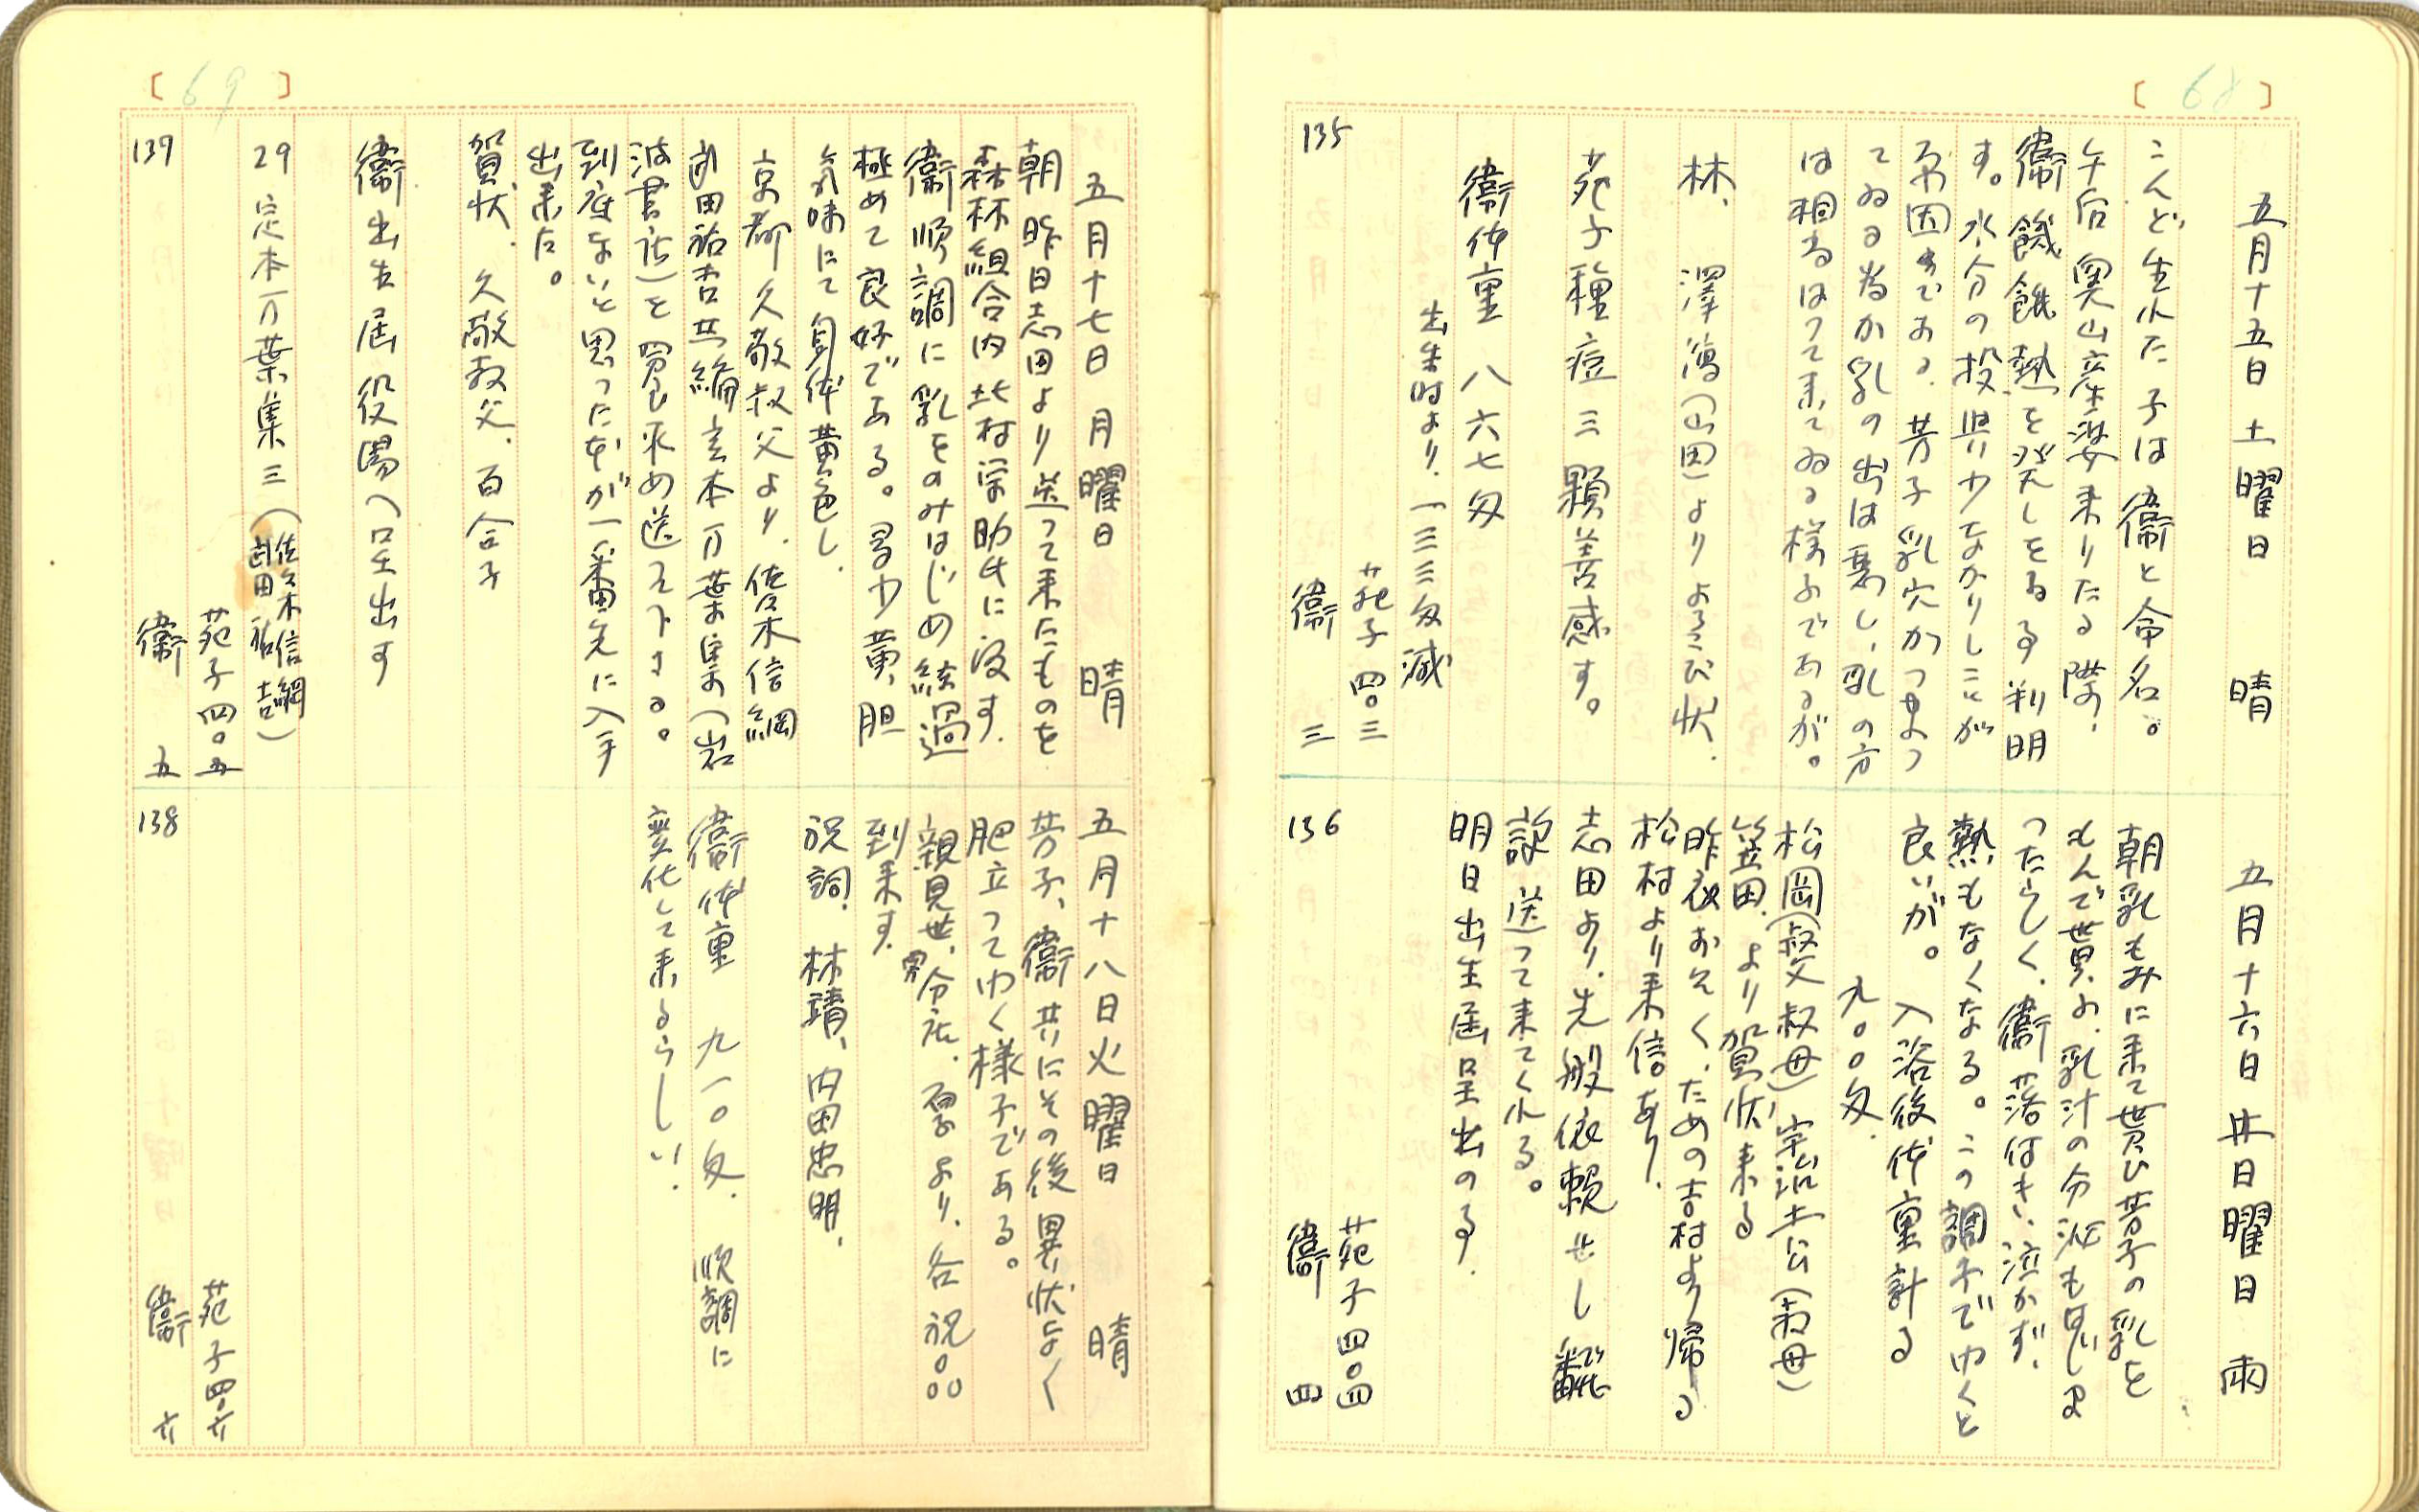 [68]
五月十五日 土曜日 晴
こんど生れた子は衞と命名。
午后 奥山産婆来りたる際、
衞 饑餓熱を発しをる事判明
す。水分の投与少なかりしことが
原因きである。芳子乳穴かつまつ
てゐる為か乳の出は悪し、乳の方
は相当はつて来てゐる様子であるが。
林、澤瀉(山田)よりよろこび状.
苑子種痘三顆善感す。
衞体重 八六七匁
出生時より、一三三匁減
苑子 四〇三
135 衞 三
五月十六日 日曜日 雨
朝乳もみに来て貰ひ芳子の乳を
もんで貰ふ、乳汁の分泌もはじま
つたらしく、衞落付き、泣かず、
熱もなくなる。この調子でゆくと
良いが。 入浴後体重計る
九〇〇匁.
松岡(叔父叔母)宇治 (叔母)
笠田、より賀状来る
昨夜おそく、ための吉村より帰る
松村より来信あり.
志田より、先般依頼せし飜
訳送つて来てくれる。
明日出生届呈出のる.
苑子 四〇四
136 衞 四
[69]
五月十七日 月曜日 晴
朝昨日志田より送つて来たものを
森林組合内北村栄助氏に渡す.
衞順調に乳をのみはじめ経過
極めて良好である。多少黄胆
気味にて身体黄色し.
京都久敬叔父より、佐々木信綱
武田祐吉共編定本万葉集(岩
波書店)を買ひ求め送つて下さる。
到底ないと思つたをが一番先に入手
出来た。
賀状. 久敬叔父. 百合子
衞出生届役場へ呈出す
29 定本万葉集三(佐々木信綱 武田祐吉)
苑子 四〇五
137 衞 五
五月十八日 火曜日 晴
芳子、衞共にその後異状なく
肥立つてゆく様子である。
親見世、分店、 より、各祝
到来す.
祝詞. 林靖、内田忠明、
衞体重 九一〇匁. 順調に
変化して来るらしい.
苑子 四〇六
138 衞 六